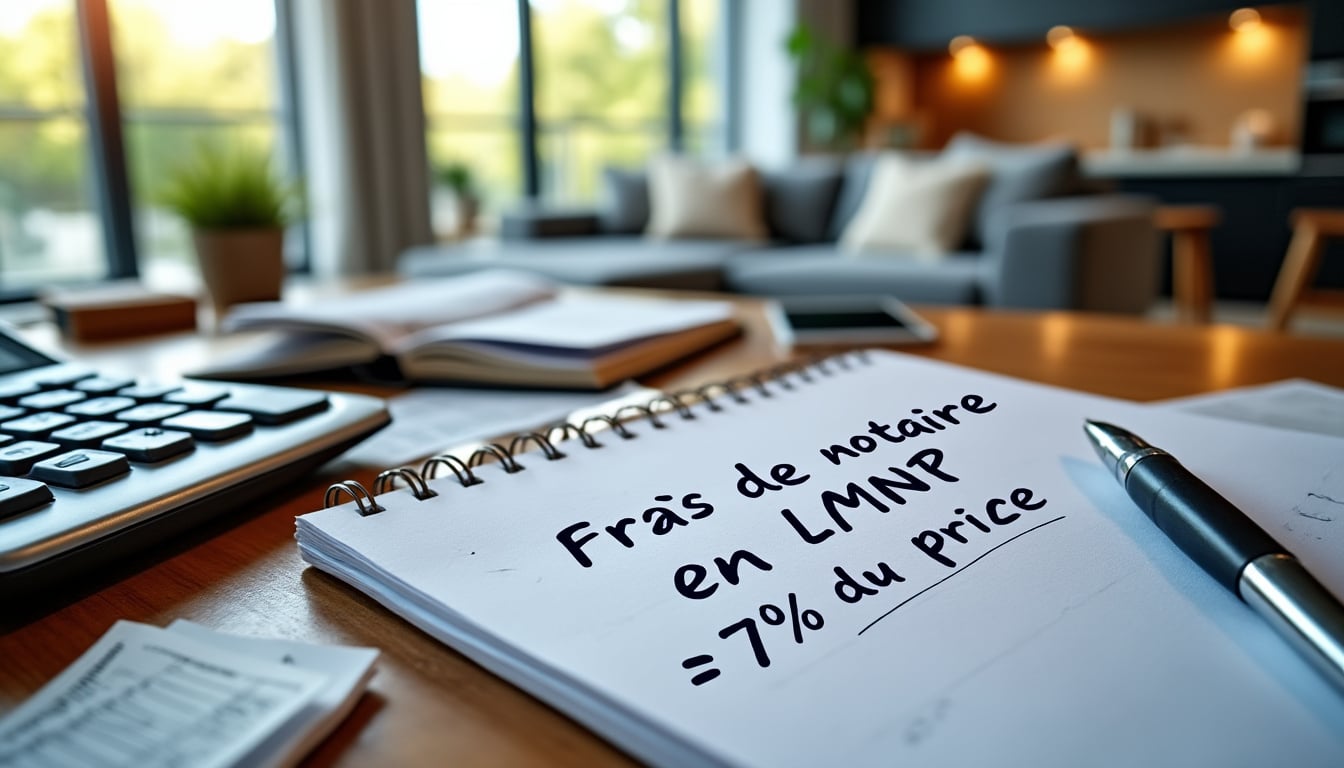 Frais de notaire
en LMNP
= 7% du price